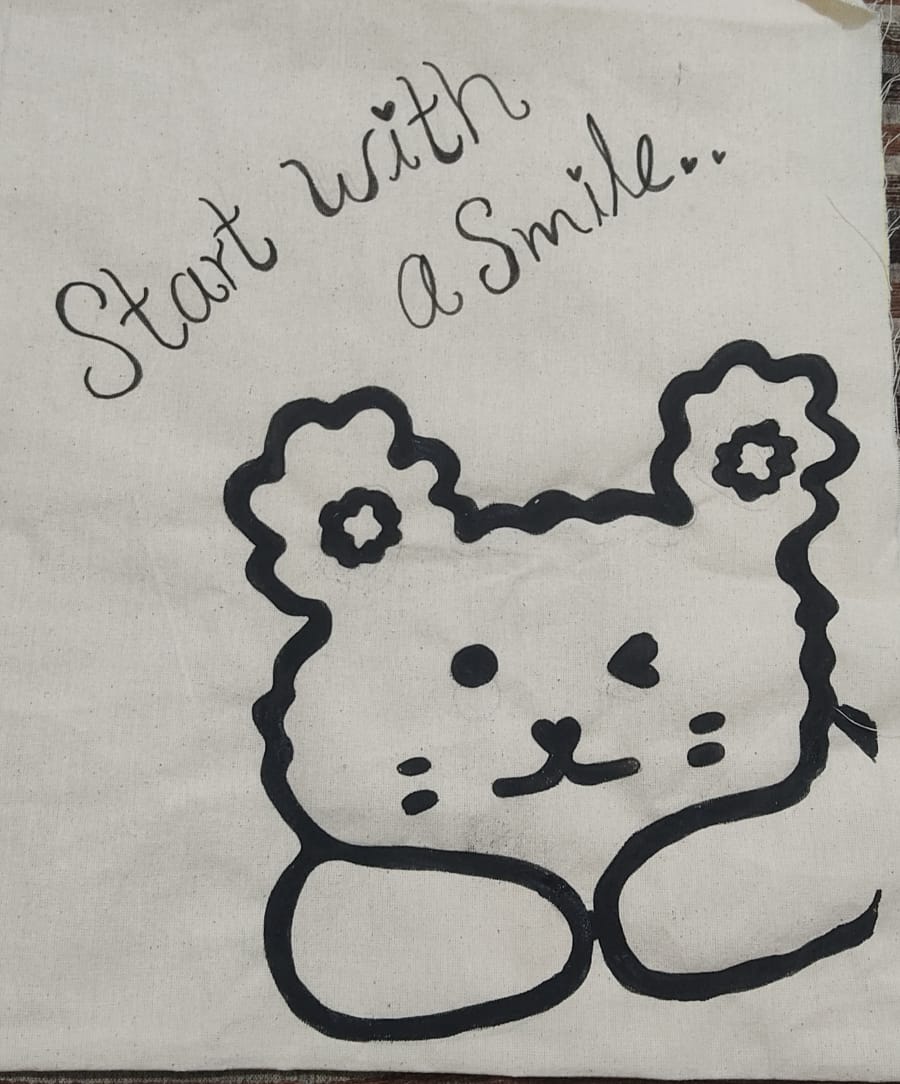 Start with
a Smile...